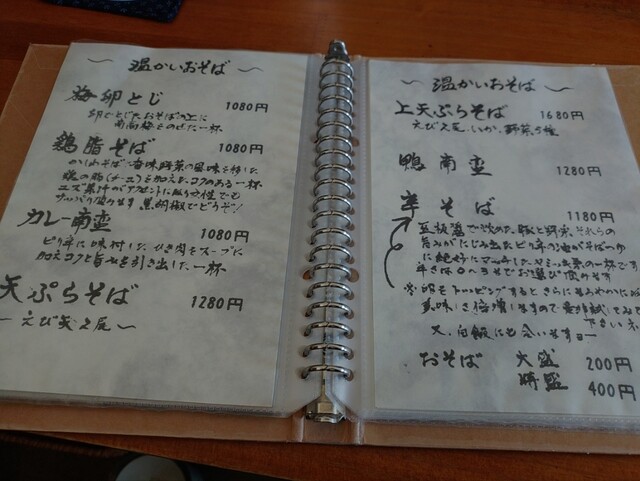 〜 温かいおそば 〜
梅卵とじ 1080円
卵でとじたおそばの上に
南高梅をのせた一杯
鶏脂そば 1080円
かしわそばに香味野菜の風味を移した
鶏の脂(チーユ)を加えたコクのある一杯
ユズ果汁がアクセントに
黒胡椒でどうぞ!
カレー南蛮 1080円
ピリ辛に味付したひき肉をスープに
加えコクと旨せを引き出した一杯
天ぷらそば 1280円
ー えび天2尾 〜
〜 温かいおそば 〜
上天ぷらそば 1680円
えび2尾、いか、野菜5種
鴨南蛮 1280円
辛そば 1180円
豆板醤で炒めた豚と野菜、それらの
旨みがにじみ出たピリ辛の油がそばつゆ
に絶妙にマッチしたヤミツキ系の一杯です
辛さは0〜3までお選び頂けます
※卵をトッピングするとさらにまろやかになり
美味しさ倍増しますので是非試してみて
下さいネ
又、白飯にも合いますヨー
おそば 大盛 200円
特盛 400円